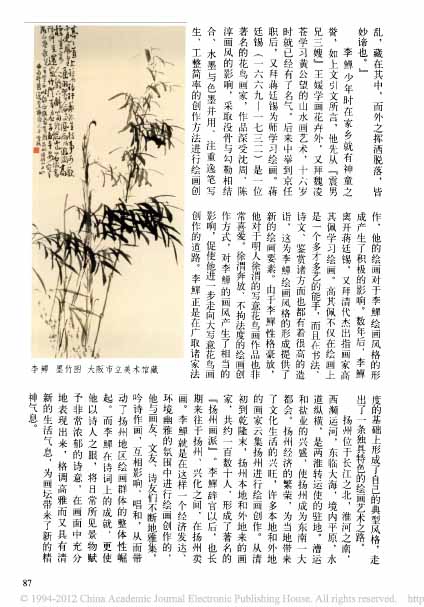 乱，藏在其中。而外之挥洒脱落，皆
妙谛也。"
李鱓少年时在家乡就有神童之
誉，如上文引文所言，他先从『震男
兄三嫂』王媛学画花卉外，又拜魏凌
苍学习黄公望的山水画艺术，十六岁
时就已经有了名气。后来中举到京任
职后，又拜蒋廷锡为师学习绘画。蒋
廷锡（一六六九—一七三二）是一位
著名的花鸟画家，作品深受沈周、陈
淳画风的影响，采取没骨与勾勒相结
合、水墨与色墨并用、注重逸笔写
生、工整简率的创作方法进行绘画创
作，他的绘画对于李鱓绘画风格的形
成产生了积极的影响。数年后，李鱓
离开蒋廷锡，又拜清代杰出指画家高
其佩学习绘画。高其佩不仅在绘画上
是一个多才多艺的能手，而且在书法、
诗文、鉴赏诸方面也都有着很高的造
诣，这为李鱓绘画风格的形成提供了
新的绘画要素。由于李鱓性格豪放，
他对于明人徐渭的写意花鸟画作品也非
常喜爱。徐渭奔放、不拘法度的绘画创
作方式，对李鱓的画风产生了相当的
影响，促使他进一步走向大写意花鸟画
创作的道路。李鱓正是在广取诸家法
度的基础上形成了自己的典型风格，走
出了一条独具特色的绘画艺术之路。
扬州位于长江之北，淮河之南，
西濒运河，东临大海，境内平原，水
道纵横，是两淮转运使的驻地。漕运
和盐业的兴盛，使扬州成为东南一大
都会。扬州经济的繁荣，为当地带来
了文化生活的兴旺，许多本地和外地
的画家云集扬州进行绘画创作。从清
初到乾隆末，扬州本地和外地来的画
家，共约一百数十人，形成了著名的
『扬州画派』。李鱓辞官以后，也长
期来往于扬州、兴化之间，在扬州卖
画。李鱓就是在这样一个经济发达、
环境幽雅的氛围中进行绘画创作的，
他与画友、文友、诗友们不断地雅集，
吟诗作画，互相影响，唱和，从而带
动了扬州地区绘画群体的整体性崛
起。而李鱓在诗词上的成就，更使
他以诗人之眼，将日常所见景物赋
予非常浓郁的诗意，在画面中充分
地表现出来，格调高雅而又具有清
新的生活气息，为画坛带来了新的精
神气息。
李鱓 墨竹图 大阪市立美术馆藏
87
© 1994-2012 China Academic Journal Electronic Publishing House. All rights reserved.